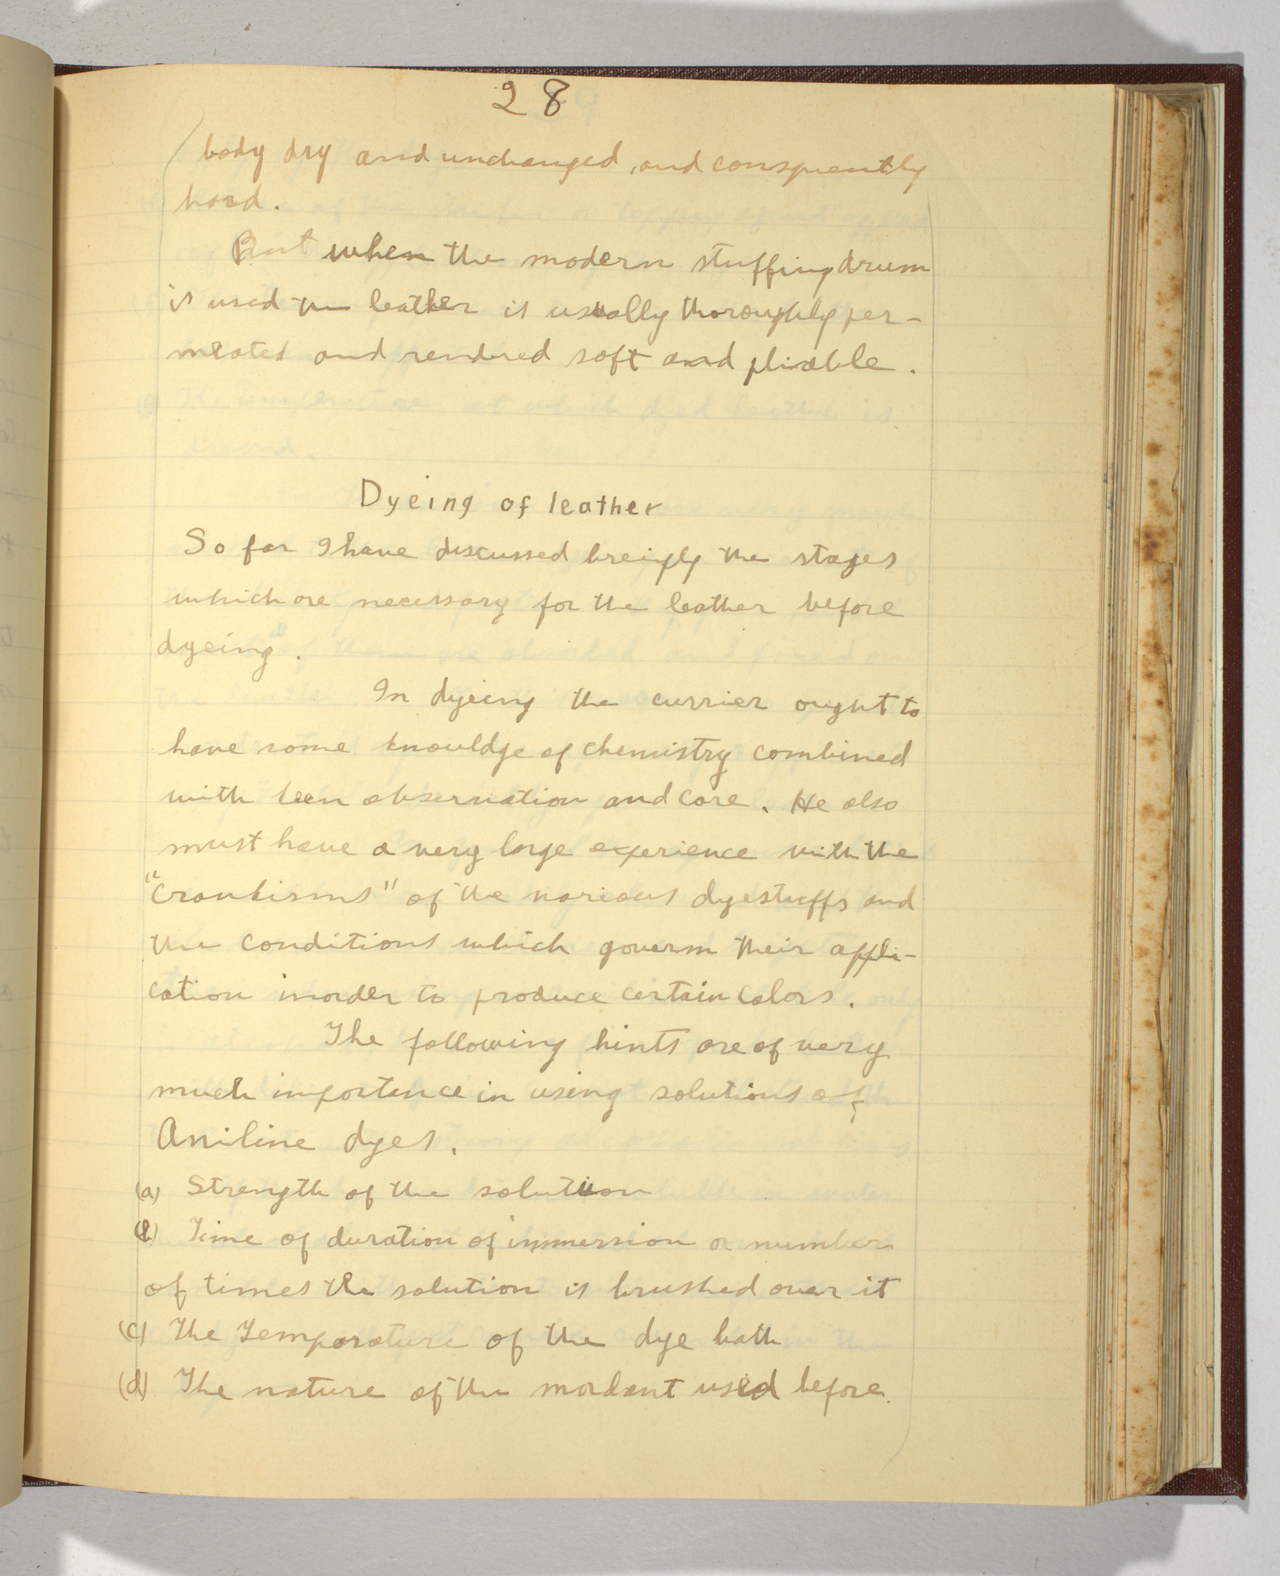 28
body dry and unchanged, and consquently
hard.
But when the modern stuffing drum
is used the leather is usually thoroughly per-
meated and rendred soft and pliable.
Dyeing of leather
So far I have discussed breifly the stages
which are necessary for the leather before
dyeing.
In dyeing the currier ought to
have some knowldge of chemistry combined
with keen observation and care. He also
must have a very large experience with the
"Crankisms" of the various dyestuffs and
the conditions which govern their appli-
cation inorder to produce certain colors.
The following hints are of very
much importance in using solutions of
Aniline dyes.
(a) Strength of the solution
(b) Time of duration of immersion or number
of times the solution is brushed over it
(c) The Temperature of the dye bath
(d) The nature of the mordant used before.